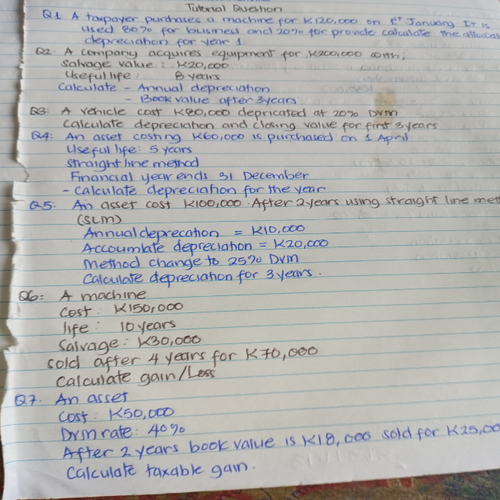 Tutorial Question
Q1. A taxpayer purchases a machine for K120,000 on 1st January. It is
used 80% for business and 20% for provide calculate the allowa
depreciation for year 1.
Q2: A company acquires equipment for K200,000 with;
Salvage value: K20,000
Useful life: 8 years
Calculate - Annual depreciation
- Book value after 3 years
Q3: A vehicle cost K80,000 depricated at 20% DVM
Calculate depreciation and closing value for first 3 years
Q4: An asset costing K60,000 is purchased on 1 April
Useful life: 5 years
Straight line method
Financial year ends 31 December
- Calculate depreciation for the year
Q5: An asset cost K100,000. After 2 years using straight line met
(SLM)
Annual deprecation = K10,000
Accoumlate depreciation = K20,000
Method change to 25% DVM
Calculate depreciation for 3 years.
Q6: A machine
Cost: K150,000
life: 10 years
Salvage: K30,000
Sold after 4 years for K70,000
Calculate gain/Loss
Q7. An asset
Cost: K50,000
DVM rate: 40%
After 2 years book value is K18,000 sold for K25,00
Calculate taxable gain.